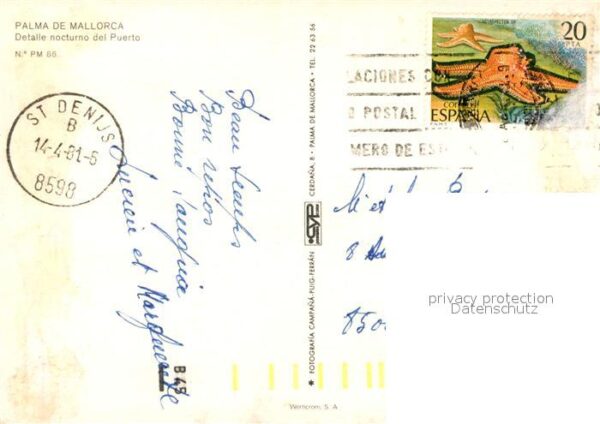 PALMA DE MALLORCA
Detalle nocturno del Puerto
N.º PM 86
ST DENIJS
B
14-4-81-6
8598
Beau temps
Bon repos
Bonne
Lucien et Marguerite
B 49
* FOTOGRAFÍA CAMPAÑÁ-PUIG-FERRÁN
CERDAÑA, 8 - PALMA DE MALLORCA - TEL. 22 63 56
20
PTA
correos
ESPAÑA
LACIONES
POSTAL
MERO DE
M et
8
850
privacy protection
Datenschutz